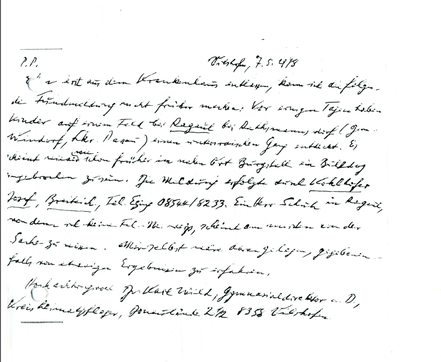 P.P. Vilshofen, 7.5.
erst aus dem Krankenhaus entlassen, kann ich die folgen-
de Fundmeldung nicht früher machen: Vor einigen Tagen haben
Kinder auf einem Feld bei Rageut bei Rathsmannsdorf (Gem.
Windorf, Lkr. Passau) einen unterirdischen Gang entdeckt. Es
scheint schon früher im nahen Ort Burgstall ein
zu sein. Die Meldung erfolgte durch Kohlhofer
Josef, Tel. 08546/8233. Ein Herr in Rageut,
von dem ich keine Tel. Nr. weiß, scheint am meisten von der
Sache zu wissen. Mir selbst wäre daran gelegen, gegebenen-
falls von etwaigen Ergebnissen zu erfahren.
Dr. Karl Wild, Gymnasialdirektor a.D.,
Kreisheimatpfleger, Donaulände 8358 Vilshofen